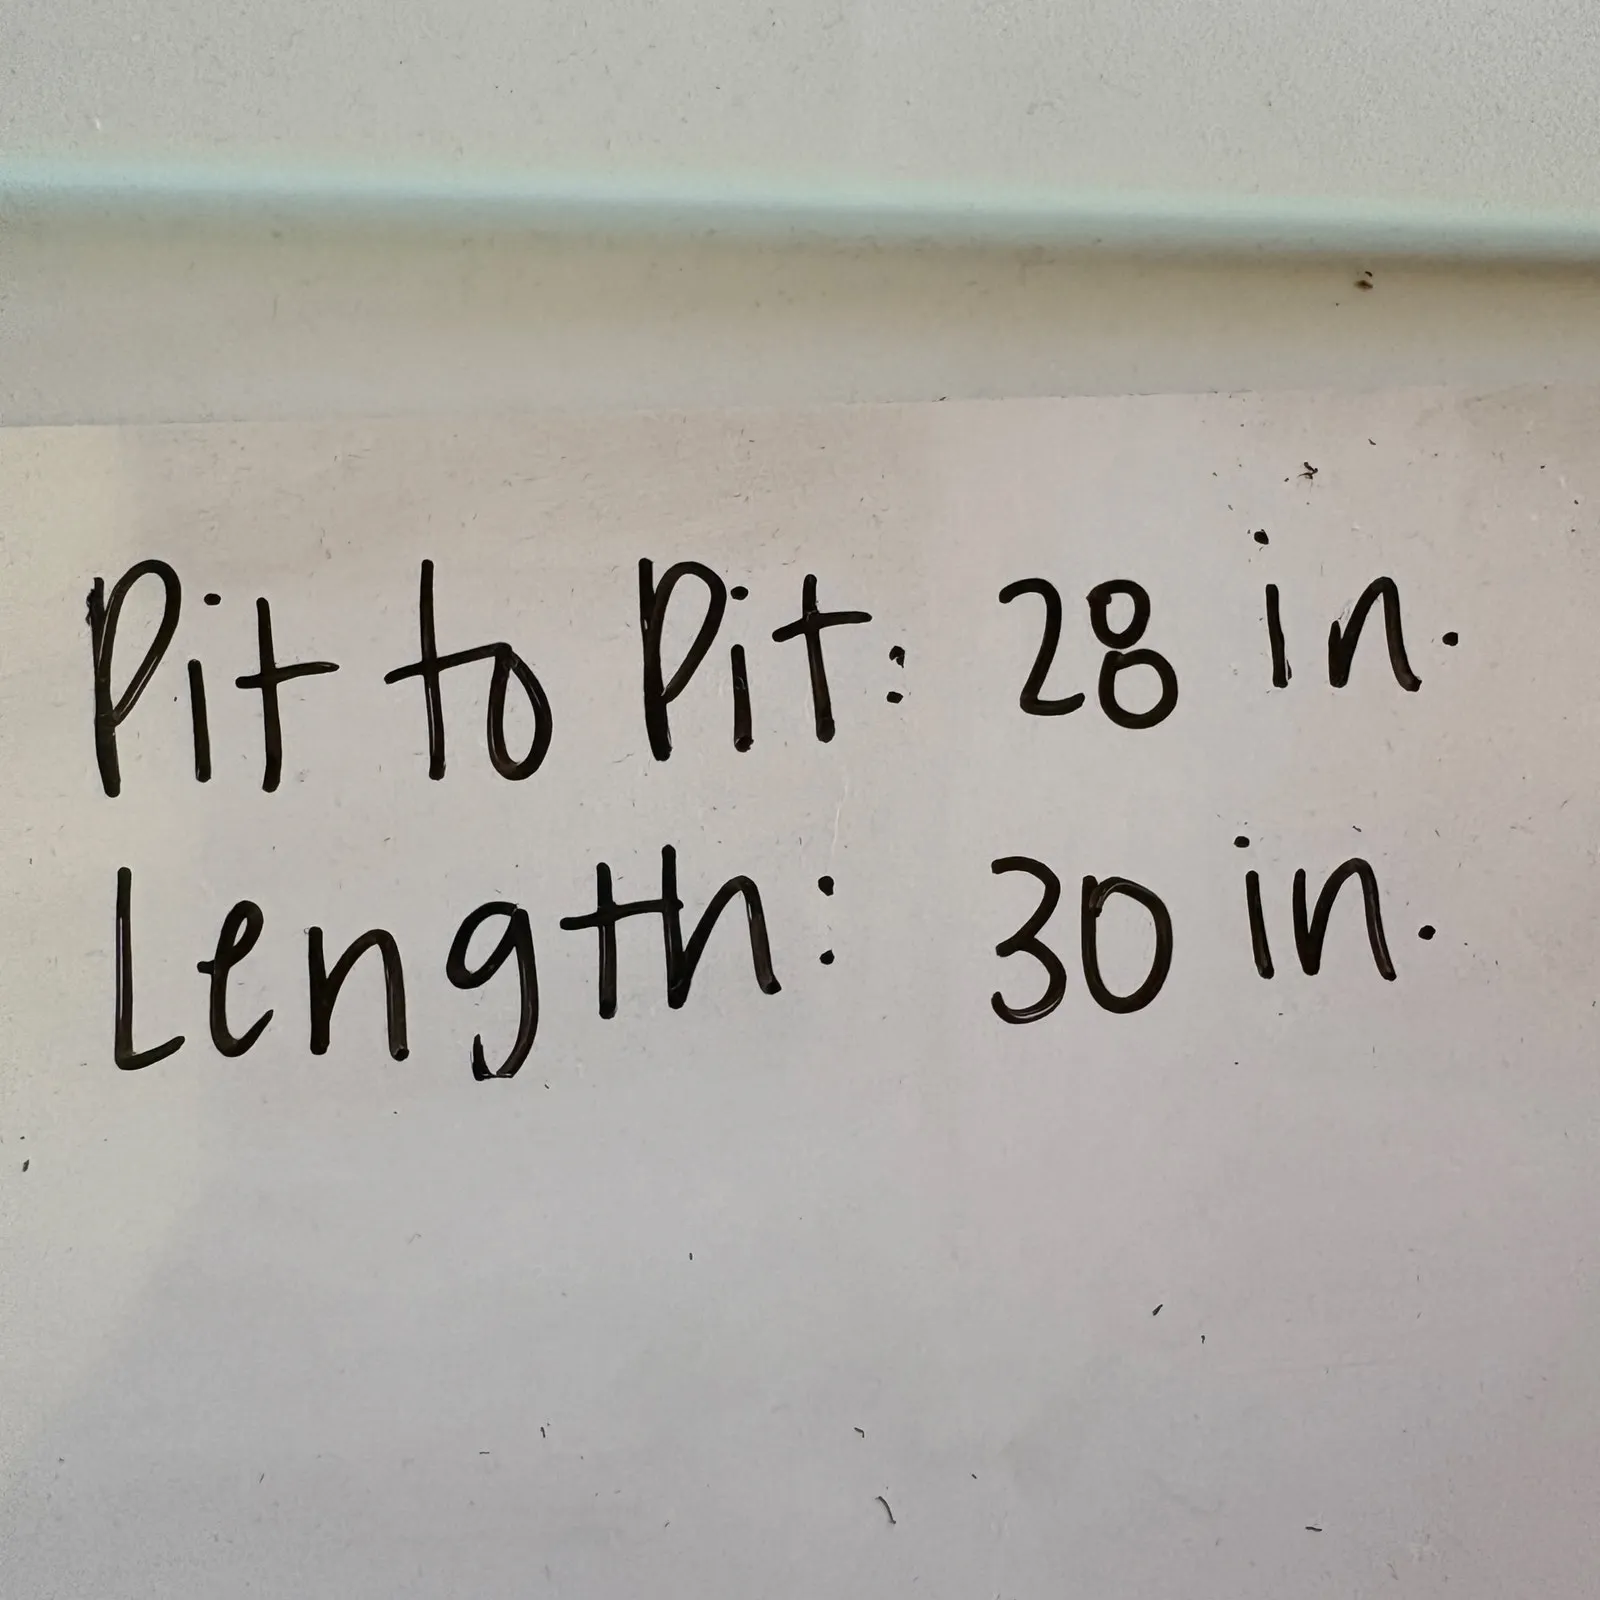 Pit to Pit: 28 in.
Length: 30 in.